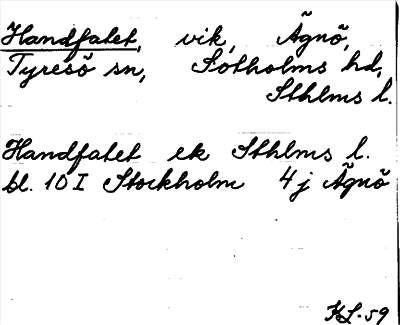 Handfatet, vik, Ägnö,
Tyresö sn, Sotholms hd,
Sthlms l.
Handfatet ek Sthlms l.
bl. 10 I Stockholm 4 j Ägnö
KL-59